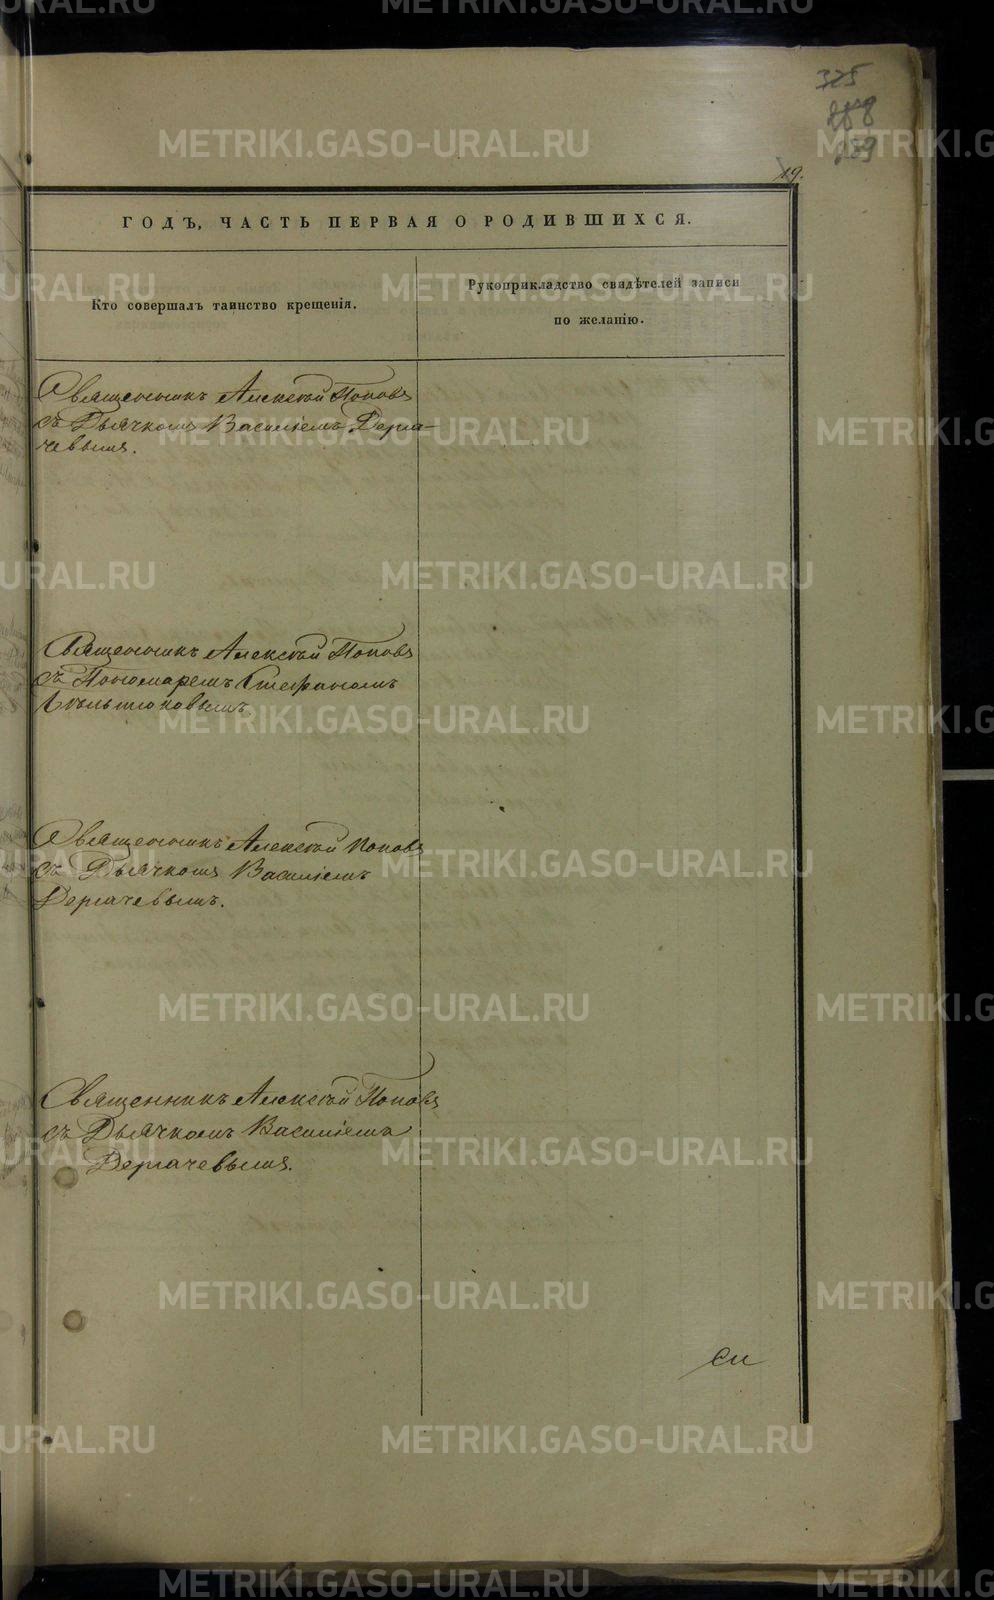 325
288
289
19.
ГОДЪ, ЧАСТЬ ПЕРВАЯ О РОДИВШИХСЯ.
Кто совершалъ таинство крещенія.
Рукоприкладство свидѣтелей записи
по желанію.
Священникъ Алексѣй Поповъ
съ Дьячкомъ Василіемъ Дерга-
чевымъ.
Священникъ Алексѣй Поповъ
съ Пономаремъ Стефаномъ
Священникъ Алексѣй Поповъ
съ Дьячкомъ Василіемъ
Дергачевымъ.
Священникъ Алексѣй Поповъ
съ Дьячкомъ Василіемъ
Дергачевымъ.
METRIKI.GASO-URAL.RU